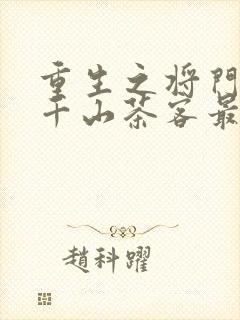 重生之将门
千山茶客最
趙科躍